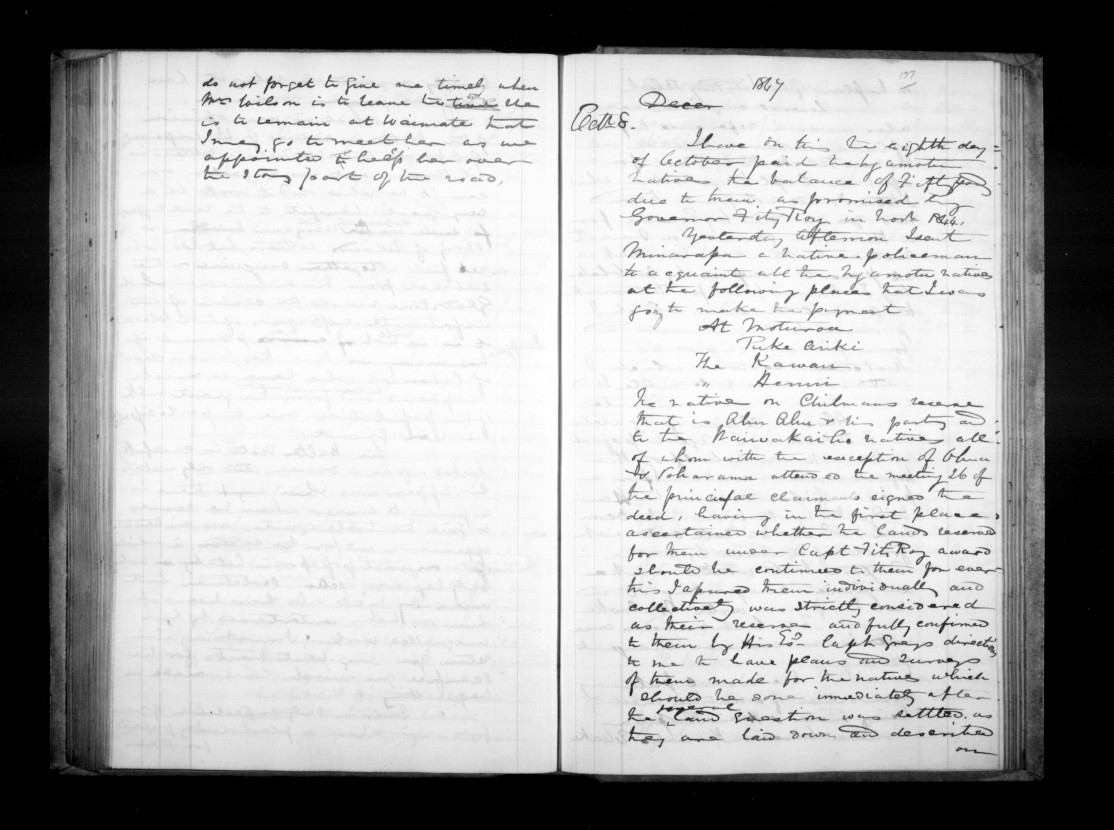 do not forget to give me timely when
Mrs Wilson is to leave to time She
is to remain at Waimate that
I may go to meet her as we
appointed to help her over
the Stony part of the road,
1847
177
Decer
Octr 8.
I have on this the eighth day
of October paid the Ngamotu
natives the balance of Fifty pounds
due to them, as promised by
Governor FitzRoy in Novr 1844.
Yesterday afternoon I sent
Minarapa a native policeman
to acquaint all the Ngamotu natives
at the following places that I was
going to make the payment
At Moturoa
Puke Ariki
The Kawau
" Henui
the native on Chilmans reserve
that is Ahu Ahu & his party and
to the Waiwakaiho natives all
of whom with the exception of
& Poharama attended the meeting 26 of
the principal claimants signed the
deed, having in the first place
ascertained whether the lands reserved
for them under Capt FitzRoy award
should be continued to them for ever
this I assured them individually and
collectively was strictly considered
as their reserve and fully confirmed
to them by His Exy Capt Greys directions
to me to have plans and surveys
of them made for the natives which
should be done immediately after
the general land question was settled. as
they are laid down and described
on